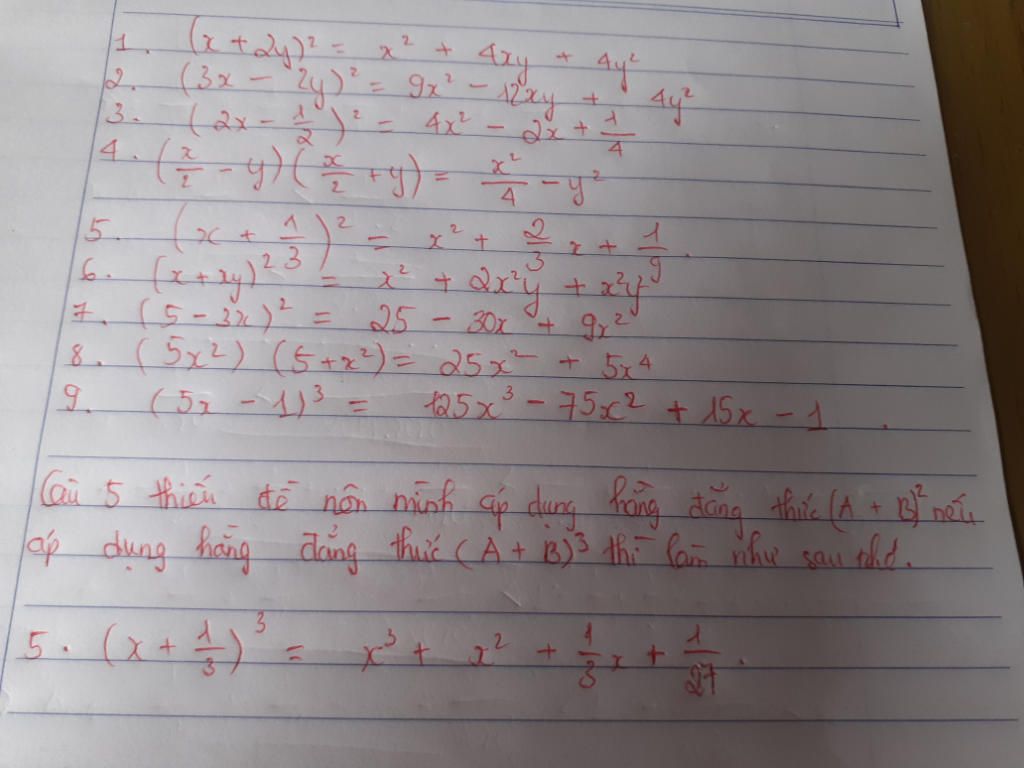 1. (x + 2y)² = x² + 4xy + 4y²
2. (3x - 2y)² = 9x² - 12xy + 4y²
3. (2x - 1/2)² = 4x² - 2x + 1/4
4. (x/2 - y)(x/2 + y) = x²/4 - y²
5. (x + 1/3)² = x² + 2/3 x + 1/9.
6. (x + xy)² = x² + 2x²y + x²y²
7. (5 - 3x)² = 25 - 30x + 9x²
8. (5x²) (5+x²) = 25x² + 5x⁴
9. (5x - 1)³ = 125x³ - 75x² + 15x - 1.
Câu 5 thiếu đề nên mình áp dụng hằng đẳng thức (A + B)² nếu
áp dụng hằng đẳng thức (A + B)³ thì làm như sau nhé.
5. (x + 1/3)³ = x³ + x² + 1/3 x + 1/27.